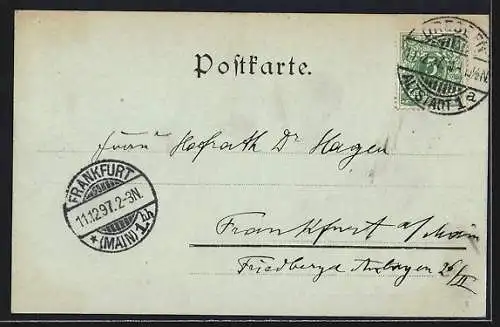 Postkarte.
DRESDEN
ALTSTADT 1 a
Herrn Hofrath Dr Hagen
FRANKFURT
11.12.97. 2-3N.
* (MAIN) 1. bh
Frankfurt a/Main
Friedberger Anlagen 26/II